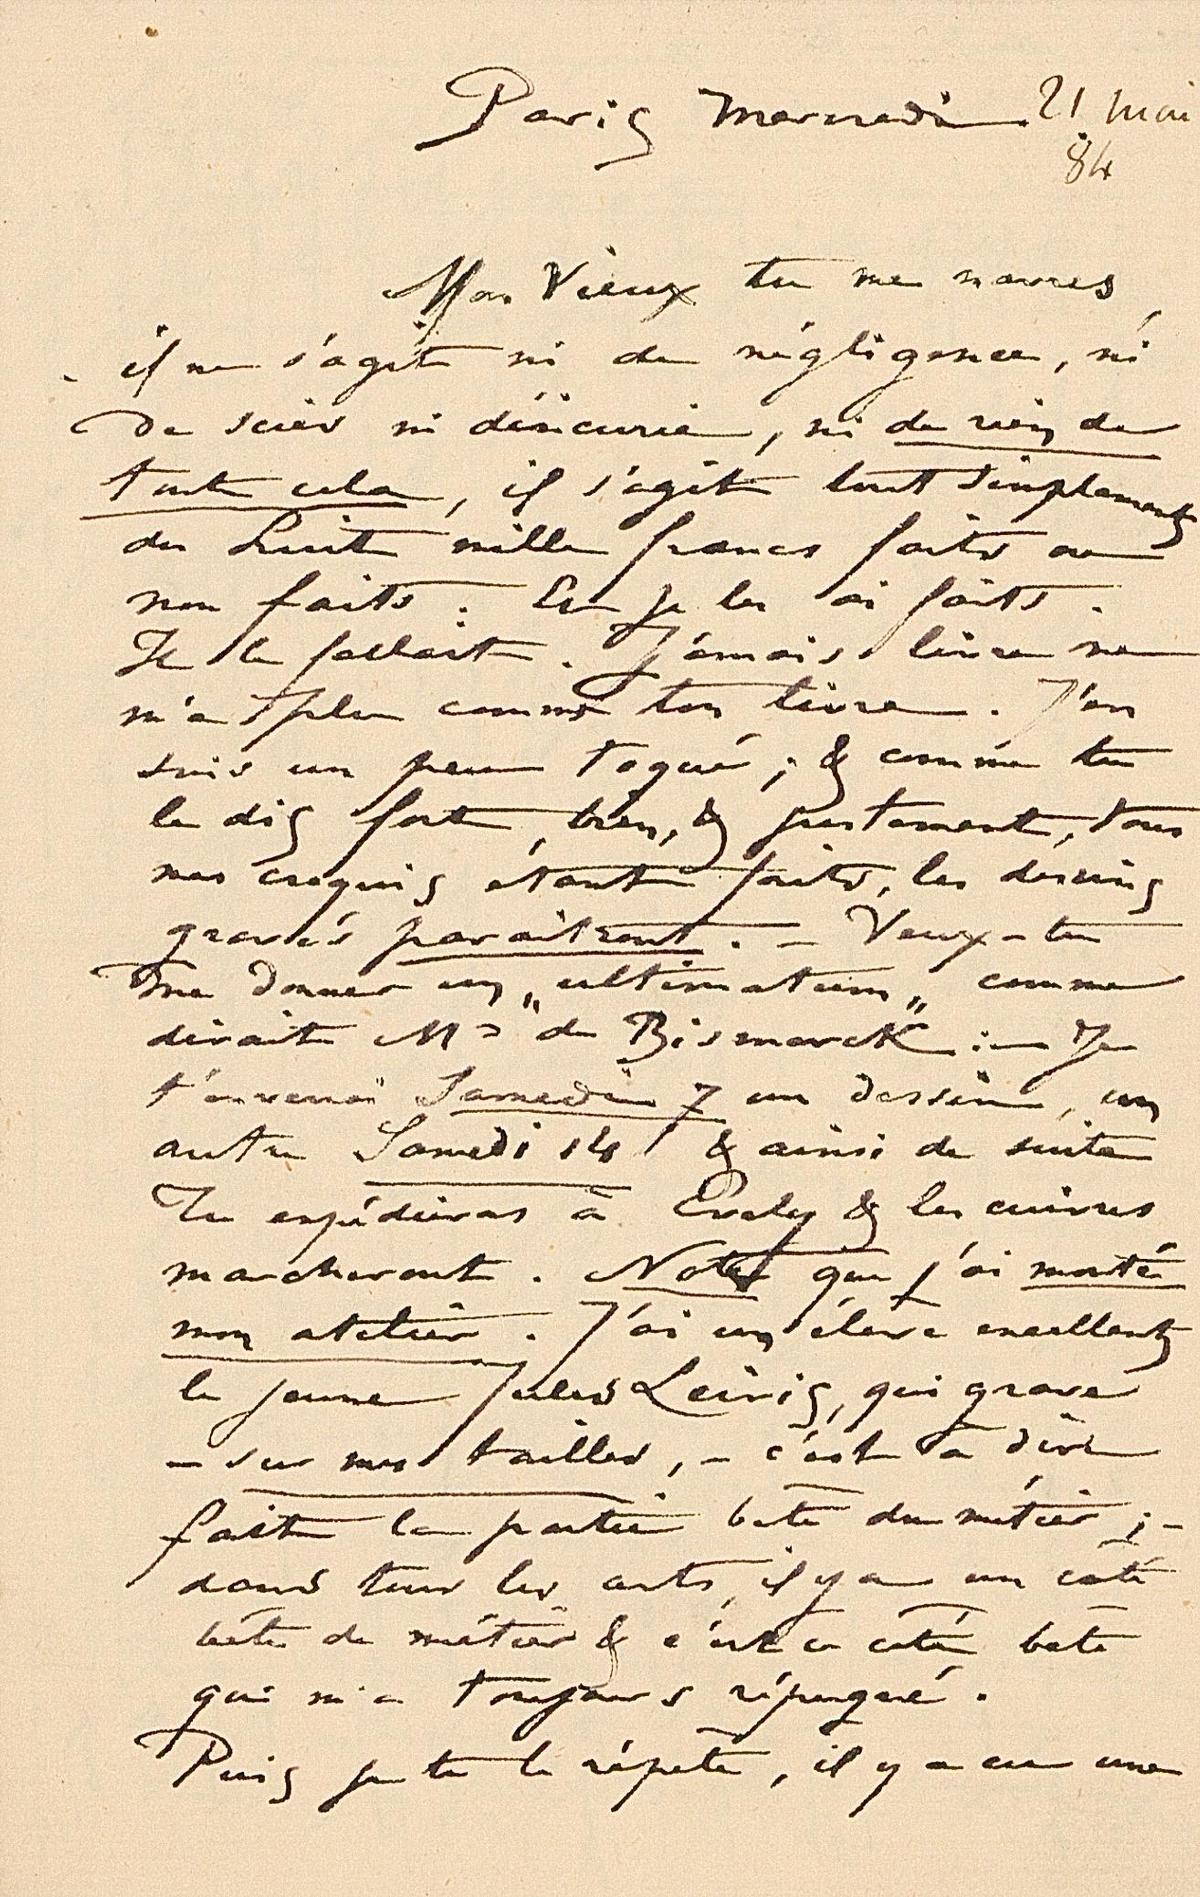 Paris Mercredi 21 mai
84
Mon Vieux tu me navres,
il ne s'agit ni de négligence, ni
de scies ni d'incurie, ni de rien de
tout cela, il s'agit tout simplement
de huit mille francs faits ou
non faits. Eh je les ai faits.
Il le fallait. Jamais livre ne
m'a plu comme ton livre. J'en
suis un peu toqué ; & comme tu
le dis fort, bien, & justement, tous
mes croquis étant faits, les dessins
gravés paraitront. – Veux-tu
me donner un „ultimatum„ comme
dirait Mr de Bismarck : – Je
t'enverrai Samedi 7 un dessin, un
autre Samedi 14 & ainsi de suite
Tu expédieras à Evely & les cuivres
marcheront. Notes que j'ai monté
mon atelier. J'ai un élève excellent
le jeune Jules, qui grave
– sur mes tailles, – c'est à dire
fait la partie bête du métier ; –
dans tous les arts, il y a un coté
bête de métier & c'est ce coté bête
qui m'a toujours répugné.
Puis je te le répète, il y a eu une